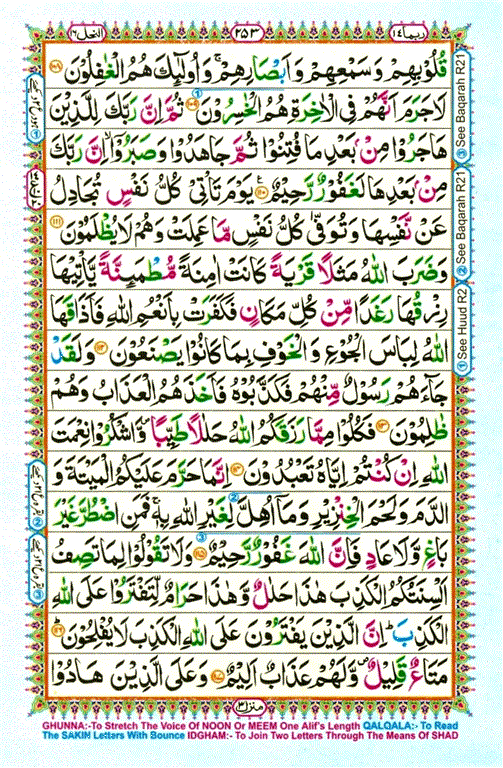 ربما ١٤
٢٥٣
النحل ١٦
قُلُوْبِهِمْ وَسَمْعِهِمْ وَاَبْصَارِهِمْ ۚ وَاُولٰٓئِكَ هُمُ الْغٰفِلُوْنَ ﴿١٠٨﴾
لَاجَرَمَ اَنَّهُمْ فِى الْاٰخِرَةِ هُمُ الْخٰسِرُوْنَ ﴿١٠٩﴾ ثُمَّ اِنَّ رَبَّكَ لِلَّذِيْنَ
هَاجَرُوْا مِنْۢ بَعْدِ مَا فُتِنُوْا ثُمَّ جَاهَدُوْا وَصَبَرُوْٓا ۙ اِنَّ رَبَّكَ
مِنْۢ بَعْدِهَا لَغَفُوْرٌ رَّحِيْمٌ ﴿١١٠﴾ يَوْمَ تَاْتِىْ كُلُّ نَفْسٍ تُجَادِلُ
عَنْ نَّفْسِهَا وَتُوَفّٰى كُلُّ نَفْسٍ مَّا عَمِلَتْ وَهُمْ لَا يُظْلَمُوْنَ ﴿١١١﴾
وَضَرَبَ اللّٰهُ مَثَلًا قَرْيَةً كَانَتْ اٰمِنَةً مُّطْمَئِنَّةً يَّاْتِيْهَا
رِزْقُهَا رَغَدًا مِّنْ كُلِّ مَكَانٍ فَكَفَرَتْ بِاَنْعُمِ اللّٰهِ فَاَذَاقَهَا
اللّٰهُ لِبَاسَ الْجُوْعِ وَالْخَوْفِ بِمَا كَانُوْا يَصْنَعُوْنَ ﴿١١٢﴾ وَلَقَدْ
جَآءَهُمْ رَسُوْلٌ مِّنْهُمْ فَكَذَّبُوْهُ فَاَخَذَهُمُ الْعَذَابُ وَهُمْ
ظٰلِمُوْنَ ﴿١١٣﴾ فَكُلُوْا مِمَّا رَزَقَكُمُ اللّٰهُ حَلٰلًا طَيِّبًا ۪ وَّاشْكُرُوْا نِعْمَتَ
اللّٰهِ اِنْ كُنْتُمْ اِيَّاهُ تَعْبُدُوْنَ ﴿١١٤﴾ اِنَّمَا حَرَّمَ عَلَيْكُمُ الْمَيْتَةَ وَ
الدَّمَ وَلَحْمَ الْخِنْزِيْرِ وَمَآ اُهِلَّ لِغَيْرِ اللّٰهِ بِهٖ ۚ فَمَنِ اضْطُرَّ غَيْرَ
بَاغٍ وَّلَا عَادٍ فَاِنَّ اللّٰهَ غَفُوْرٌ رَّحِيْمٌ ﴿١١٥﴾ وَلَا تَقُوْلُوْا لِمَا تَصِفُ
اَلْسِنَتُكُمُ الْكَذِبَ هٰذَا حَلٰلٌ وَّهٰذَا حَرَامٌ لِّتَفْتَرُوْا عَلَى اللّٰهِ
الْكَذِبَ ؕ اِنَّ الَّذِيْنَ يَفْتَرُوْنَ عَلَى اللّٰهِ الْكَذِبَ لَا يُفْلِحُوْنَ ﴿١١٦﴾
مَتَاعٌ قَلِيْلٌ ۪ وَّلَهُمْ عَذَابٌ اَلِيْمٌ ﴿١١٧﴾ وَعَلَى الَّذِيْنَ هَادُوْا
منزل ٣
① See Huud R2 ② See Baqarah R21 ③ See Baqarah R21
GHUNNA:-To Stretch The Voice Of NOON Or MEEM One Alif's Length QALQALA:- To Read
The SAKIN Letters With Bounce IDGHAM:- To Join Two Letters Through The Means Of SHAD